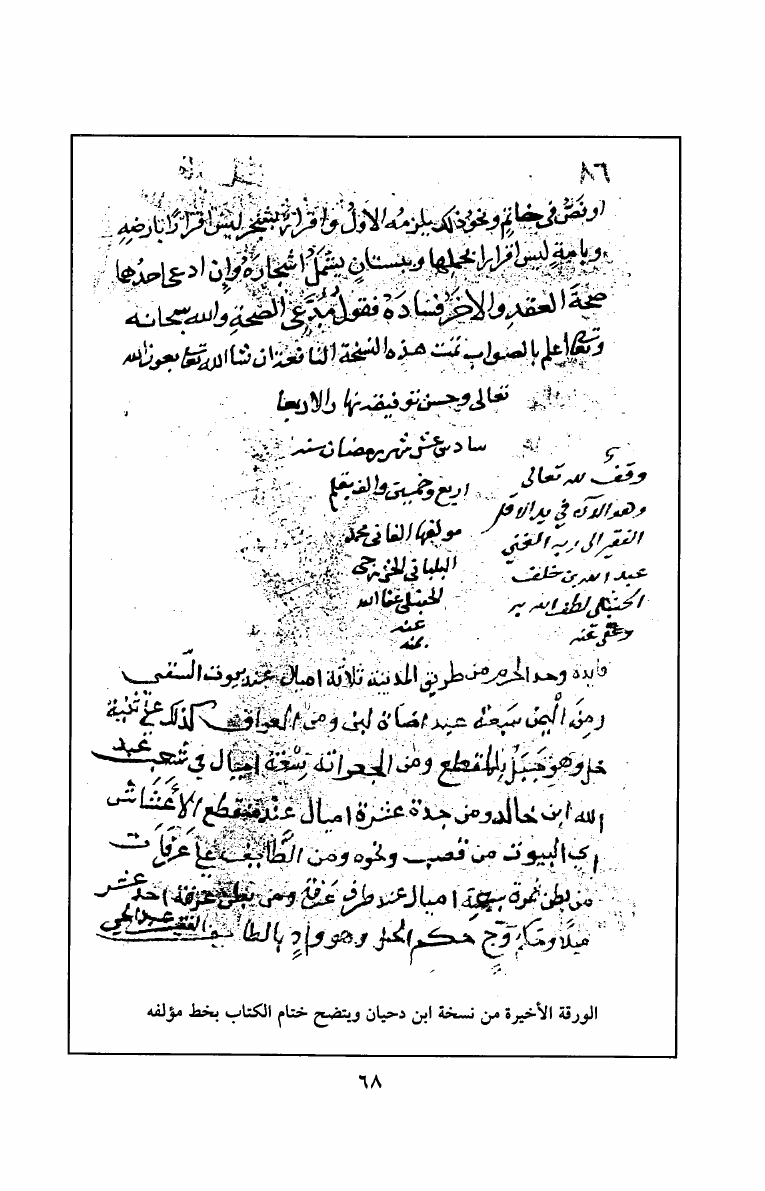 ٨٦
او نصٌّ في خاتم ونحو ذلك يلزمه الاول واقراره بشجر ليس اقرارا بارضه
وبامةٍ ليس اقرارا بحملها وببستانٍ يشمل اشجاره وان ادعى احدهما
صحة العقد والاخر فساده فقول مدعي الصحة والله سبحانه
وتعالى اعلم بالصواب تمت هذه النسخة النافعة ان شا الله تعالى بعون الله
تعالى وحسن توفيقه نهار الاربعا
سادس عشر شهر رمضان سنة
اربع وخمسين والف بقلم
مولفها الفاني محمد
البلباني الخزرجي
الحنبلي عفا الله
عنه
بمنه
وقف لله تعالى
وهو الآن في يد الاقل
الفقير الى ربه الغني
عبد الله بن خلف
الحنبلي لطف الله به
وعفى عنه
فايدة وحد الحرم من طريق المدينة ثلاثة اميال عند بيوت السقيا
ومن اليمن سبعة عند اضاة لبن ومن العراق كذلك على ثنية
خل وهو جبل بالمقطع ومن الجعرانة تسعة اميال في شعب عبد
الله ابن خالد ومن جدة عشرة اميال عند منقطع الاعشاش
اي البيوت من قصب ونحوه ومن الطايف على عرفات
من بطن نمرة سبعة اميال عند طرف عرفة ومن بطن عرفة احد عشر
ميلا وحكم وج حكم الحل وهو وادٍ بالطايف الفقير عبد الحي
الورقة الأخيرة من نسخة ابن دحيان ويتضح ختام الكتاب بخط مؤلفه
٦٨